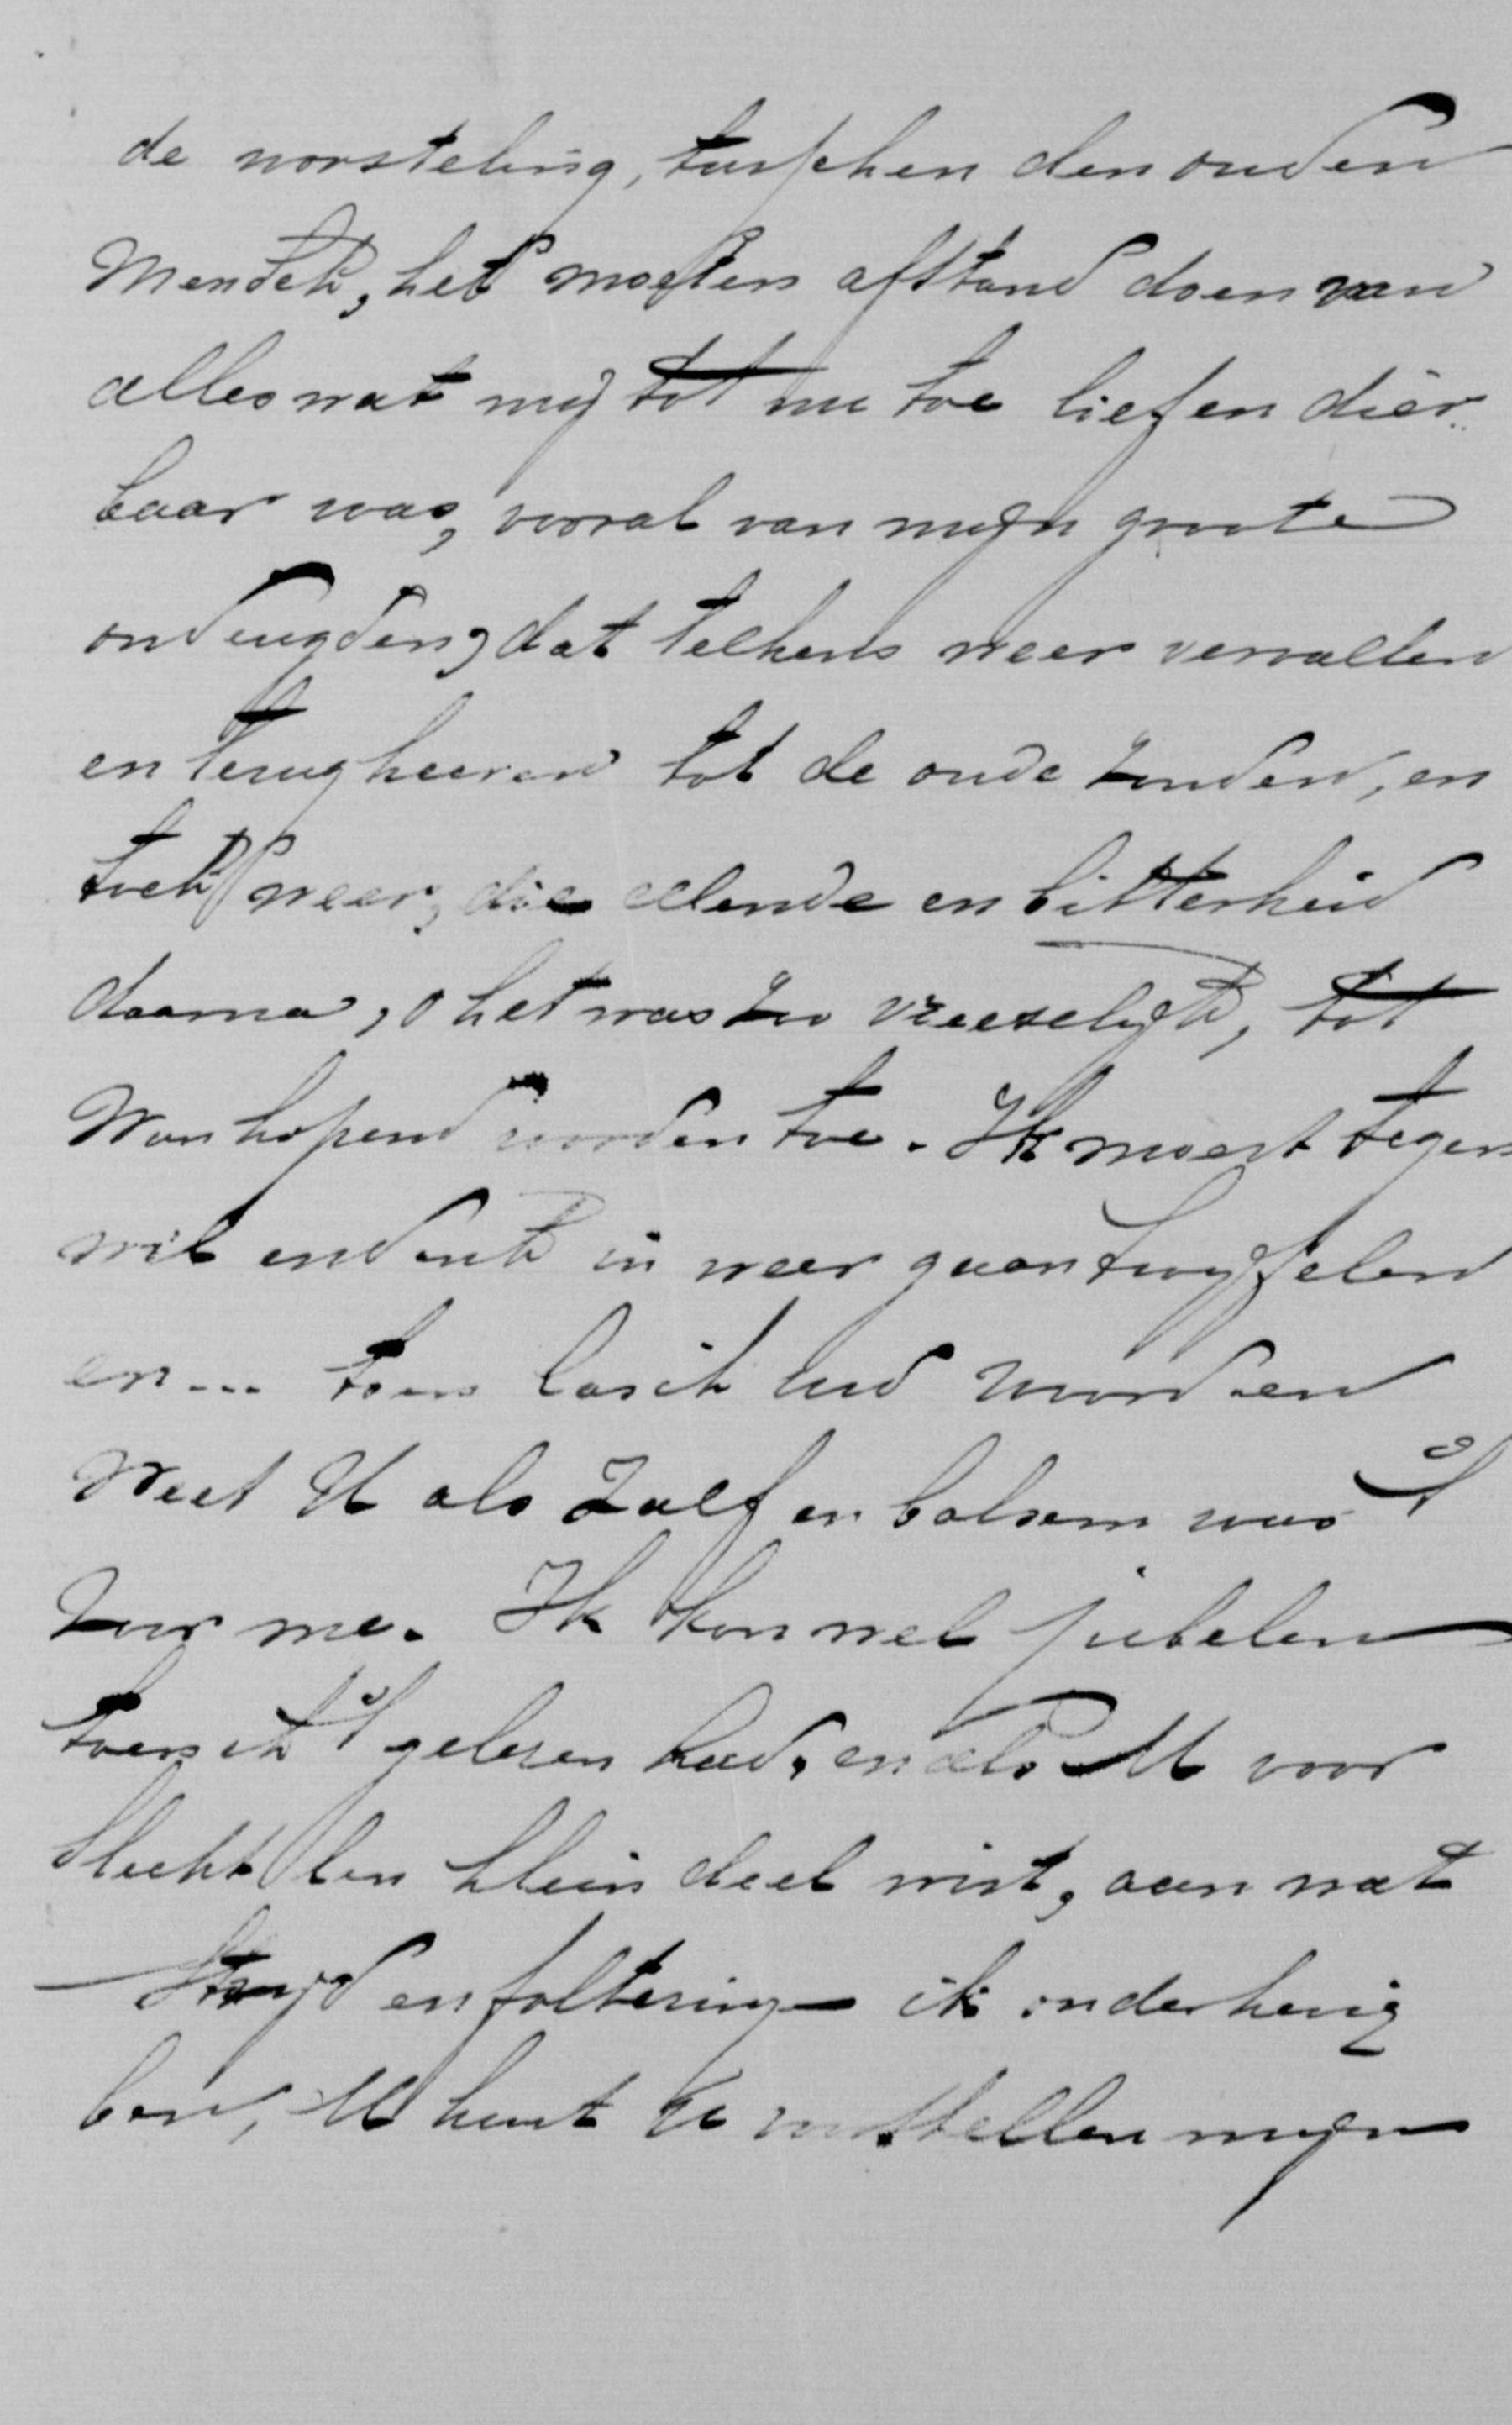 de worsteling, tusschen den ouden
Mensch, het moeten afstand doen van
alles wat mij tot nu toe lief en dier..
baar was, vooral van mijn groote
ondeugden, dat telkens weer vervallen
en terugkeeren tot de oude zonden, en
toch weer, die ellende en bitterheid
daarna, o het was zoo vreeselijk, tot
Wanhopend worden toe. Ik moest tegen
wil en dank in weer gaan twijfelen
en... toen las ik Uw woorden
Weet U als Zalf en balsem was 't
voor me. Ik kon wel jubelen
toen ik 't gelezen had, en als U voor
slechts een klein deel wist, aan wat
Strijd en foltering ik onderhevig
ben, U kunt U voorstellen mijn